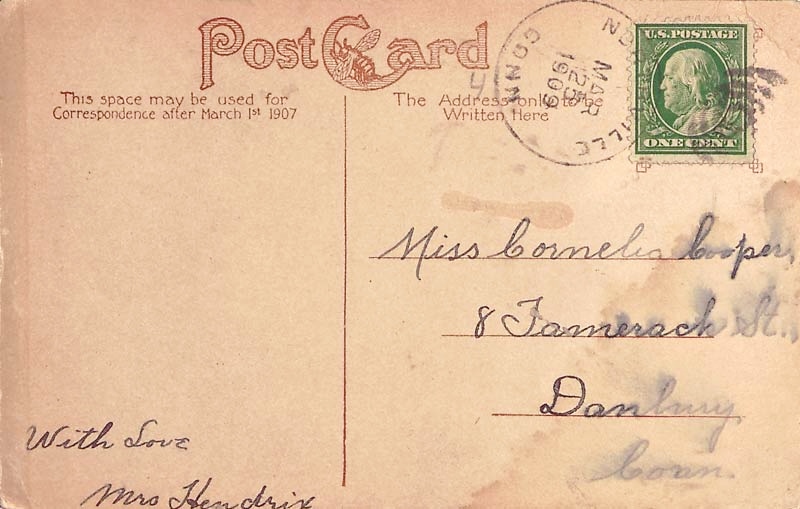 Post Card
This space may be used for
Correspondence after March 1st 1907
The Address only to be
Written Here
CONN
MAR
25
1909
VILLE
U.S. POSTAGE
ONE CENT
Miss Cornelia Cooper,
8 Tamerack St.,
Danbury
Conn.
With Love
Mrs Hendrix